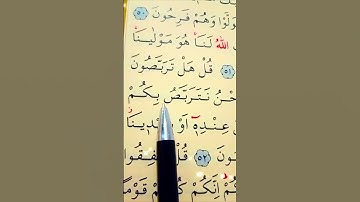 وَلَّوْا وَهُمْ فَرِحُونَ ﴿٥٠﴾
اللّٰهُ لَنَا هُوَ مَوْلٰينَا
﴿٥١﴾ قُلْ هَلْ تَرَبَّصُونَ
حْنُ نَتَرَبَّصُ بِكُمْ
عِنْدِهٖٓ اَوْ بِاَيْدٖينَا
ونَ ﴿٥٢﴾ قُلْ
اِنَّكُمْ كُنْتُمْ قَوْمًا